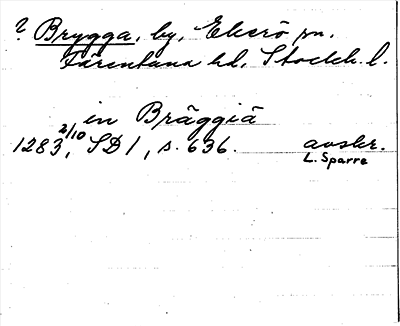 ? Brygga, by, Ekerö sn.
Färentuna hd, Stockh. l.
in Bräggiä
1283 2/10, SD 1, s. 636. avskr.
L. Sparre